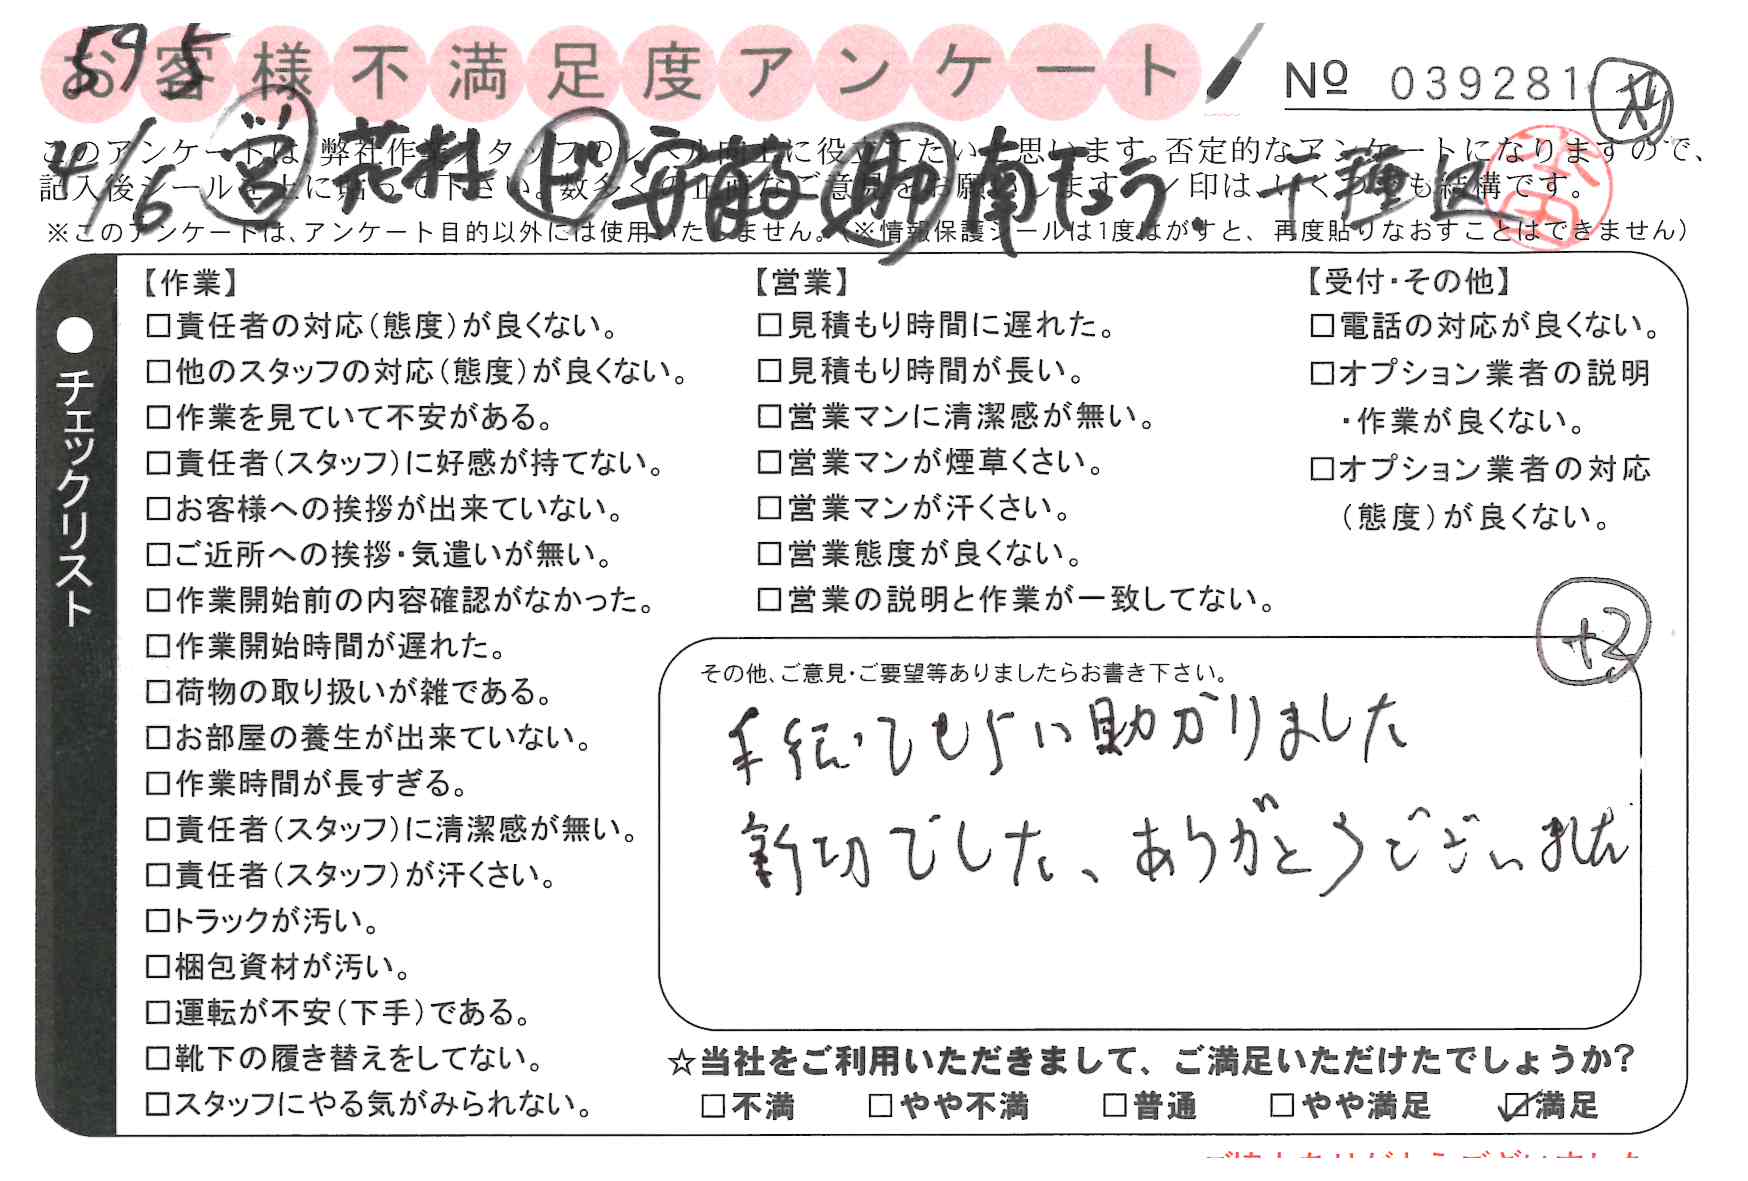 595
お客様不満足度アンケート
№ 039281
このアンケートは、弊社作業スタッフのレベル向上に役立てたいと思います。否定的なアンケートになりますので、
記入後シールを上に貼って下さい。数多くの正直なご意見をお願いします。✓印は、いくつでも結構です。
4/6 営 花料 ド 安 助 南 千種区
※このアンケートは、アンケート目的以外には使用いたしません。(※情報保護シールは1度はがすと、再度貼りなおすことはできません)
●チェックリスト
【作業】
□責任者の対応(態度)が良くない。
□他のスタッフの対応(態度)が良くない。
□作業を見ていて不安がある。
□責任者(スタッフ)に好感が持てない。
□お客様への挨拶が出来ていない。
□ご近所への挨拶・気遣いが無い。
□作業開始前の内容確認がなかった。
□作業開始時間が遅れた。
□荷物の取り扱いが雑である。
□お部屋の養生が出来ていない。
□作業時間が長すぎる。
□責任者(スタッフ)に清潔感が無い。
□責任者(スタッフ)が汗くさい。
□トラックが汚い。
□梱包資材が汚い。
□運転が不安(下手)である。
□靴下の履き替えをしてない。
□スタッフにやる気がみられない。
【営業】
□見積もり時間に遅れた。
□見積もり時間が長い。
□営業マンに清潔感が無い。
□営業マンが煙草くさい。
□営業マンが汗くさい。
□営業態度が良くない。
□営業の説明と作業が一致してない。
【受付・その他】
□電話の対応が良くない。
□オプション業者の説明
・作業が良くない。
□オプション業者の対応
(態度)が良くない。
+3
その他、ご意見・ご要望等ありましたらお書き下さい。
手伝ってもらい助かりました
親切でした、ありがとうございました
☆当社をご利用いただきまして、ご満足いただけたでしょうか?
□不満 □やや不満 □普通 □やや満足 ☑満足
ご協力ありがとうございました